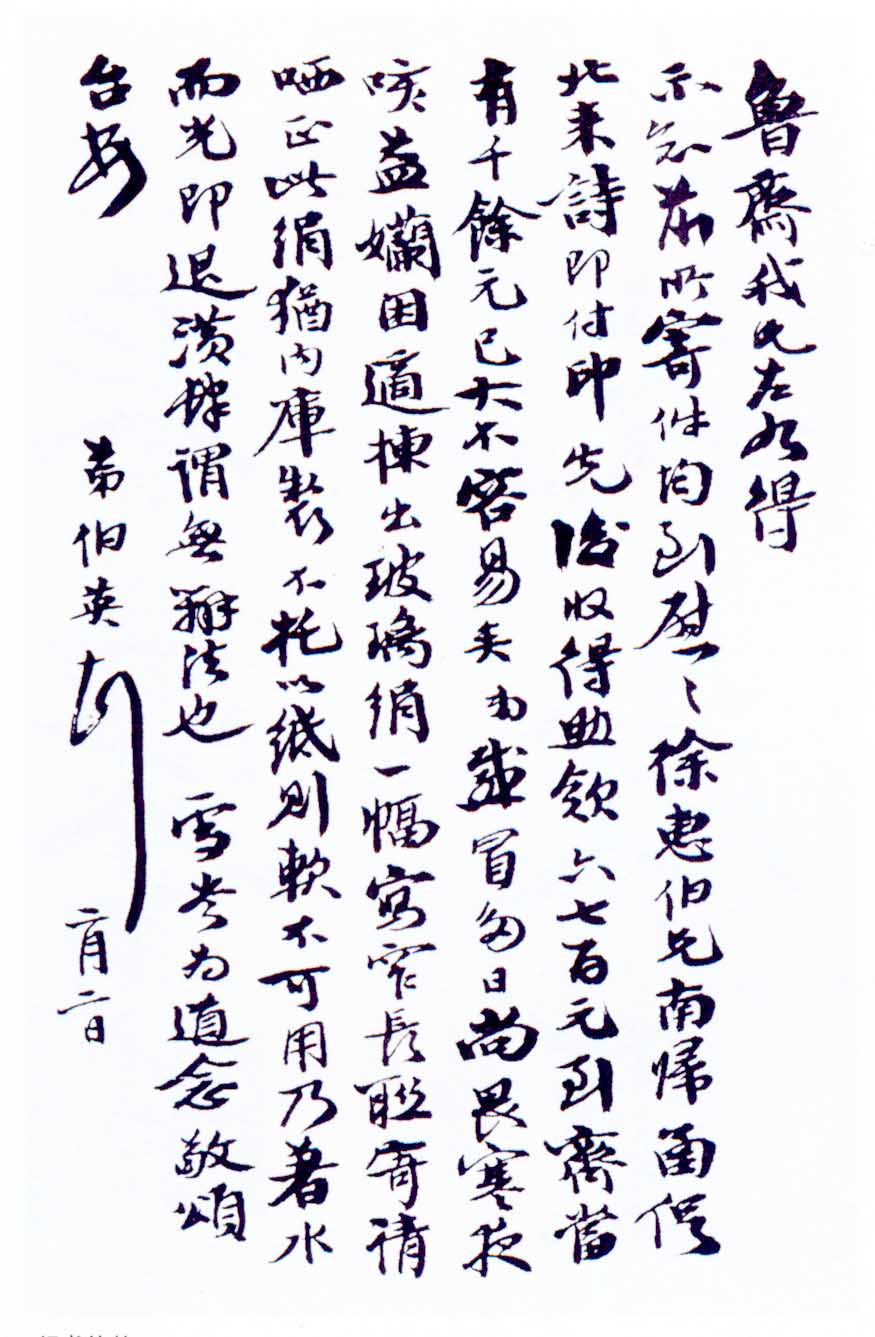 魯齋我兄左右得
示並前所寄件均到慰〻徐惠伯兄南歸面俱
北來詩即付印先後收得助款六七百元到齊當
有千餘元已大不容易矣弟感冒多日尚畏寒夜
咳益嬾困適揀出玻璃絹一幅寫窄長聯寄請
哂正此絹猶內庫製不托以紙則軟不可用乃著水
而光即退潢肆謂無辦法也 雪堂为道念敬頌
台安
弟伯英 二月二日